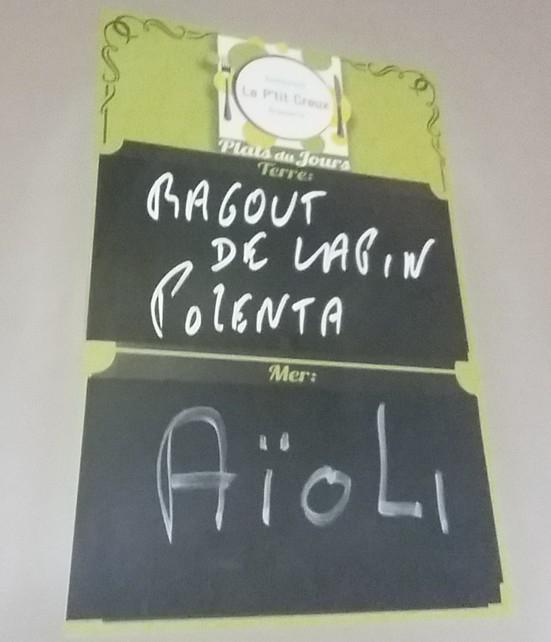 Restaurant
Le P'tit Creux
Plats du Jours
Terre:
RAGOUT
DE LAPIN
POLENTA
Mer:
AÏOLI